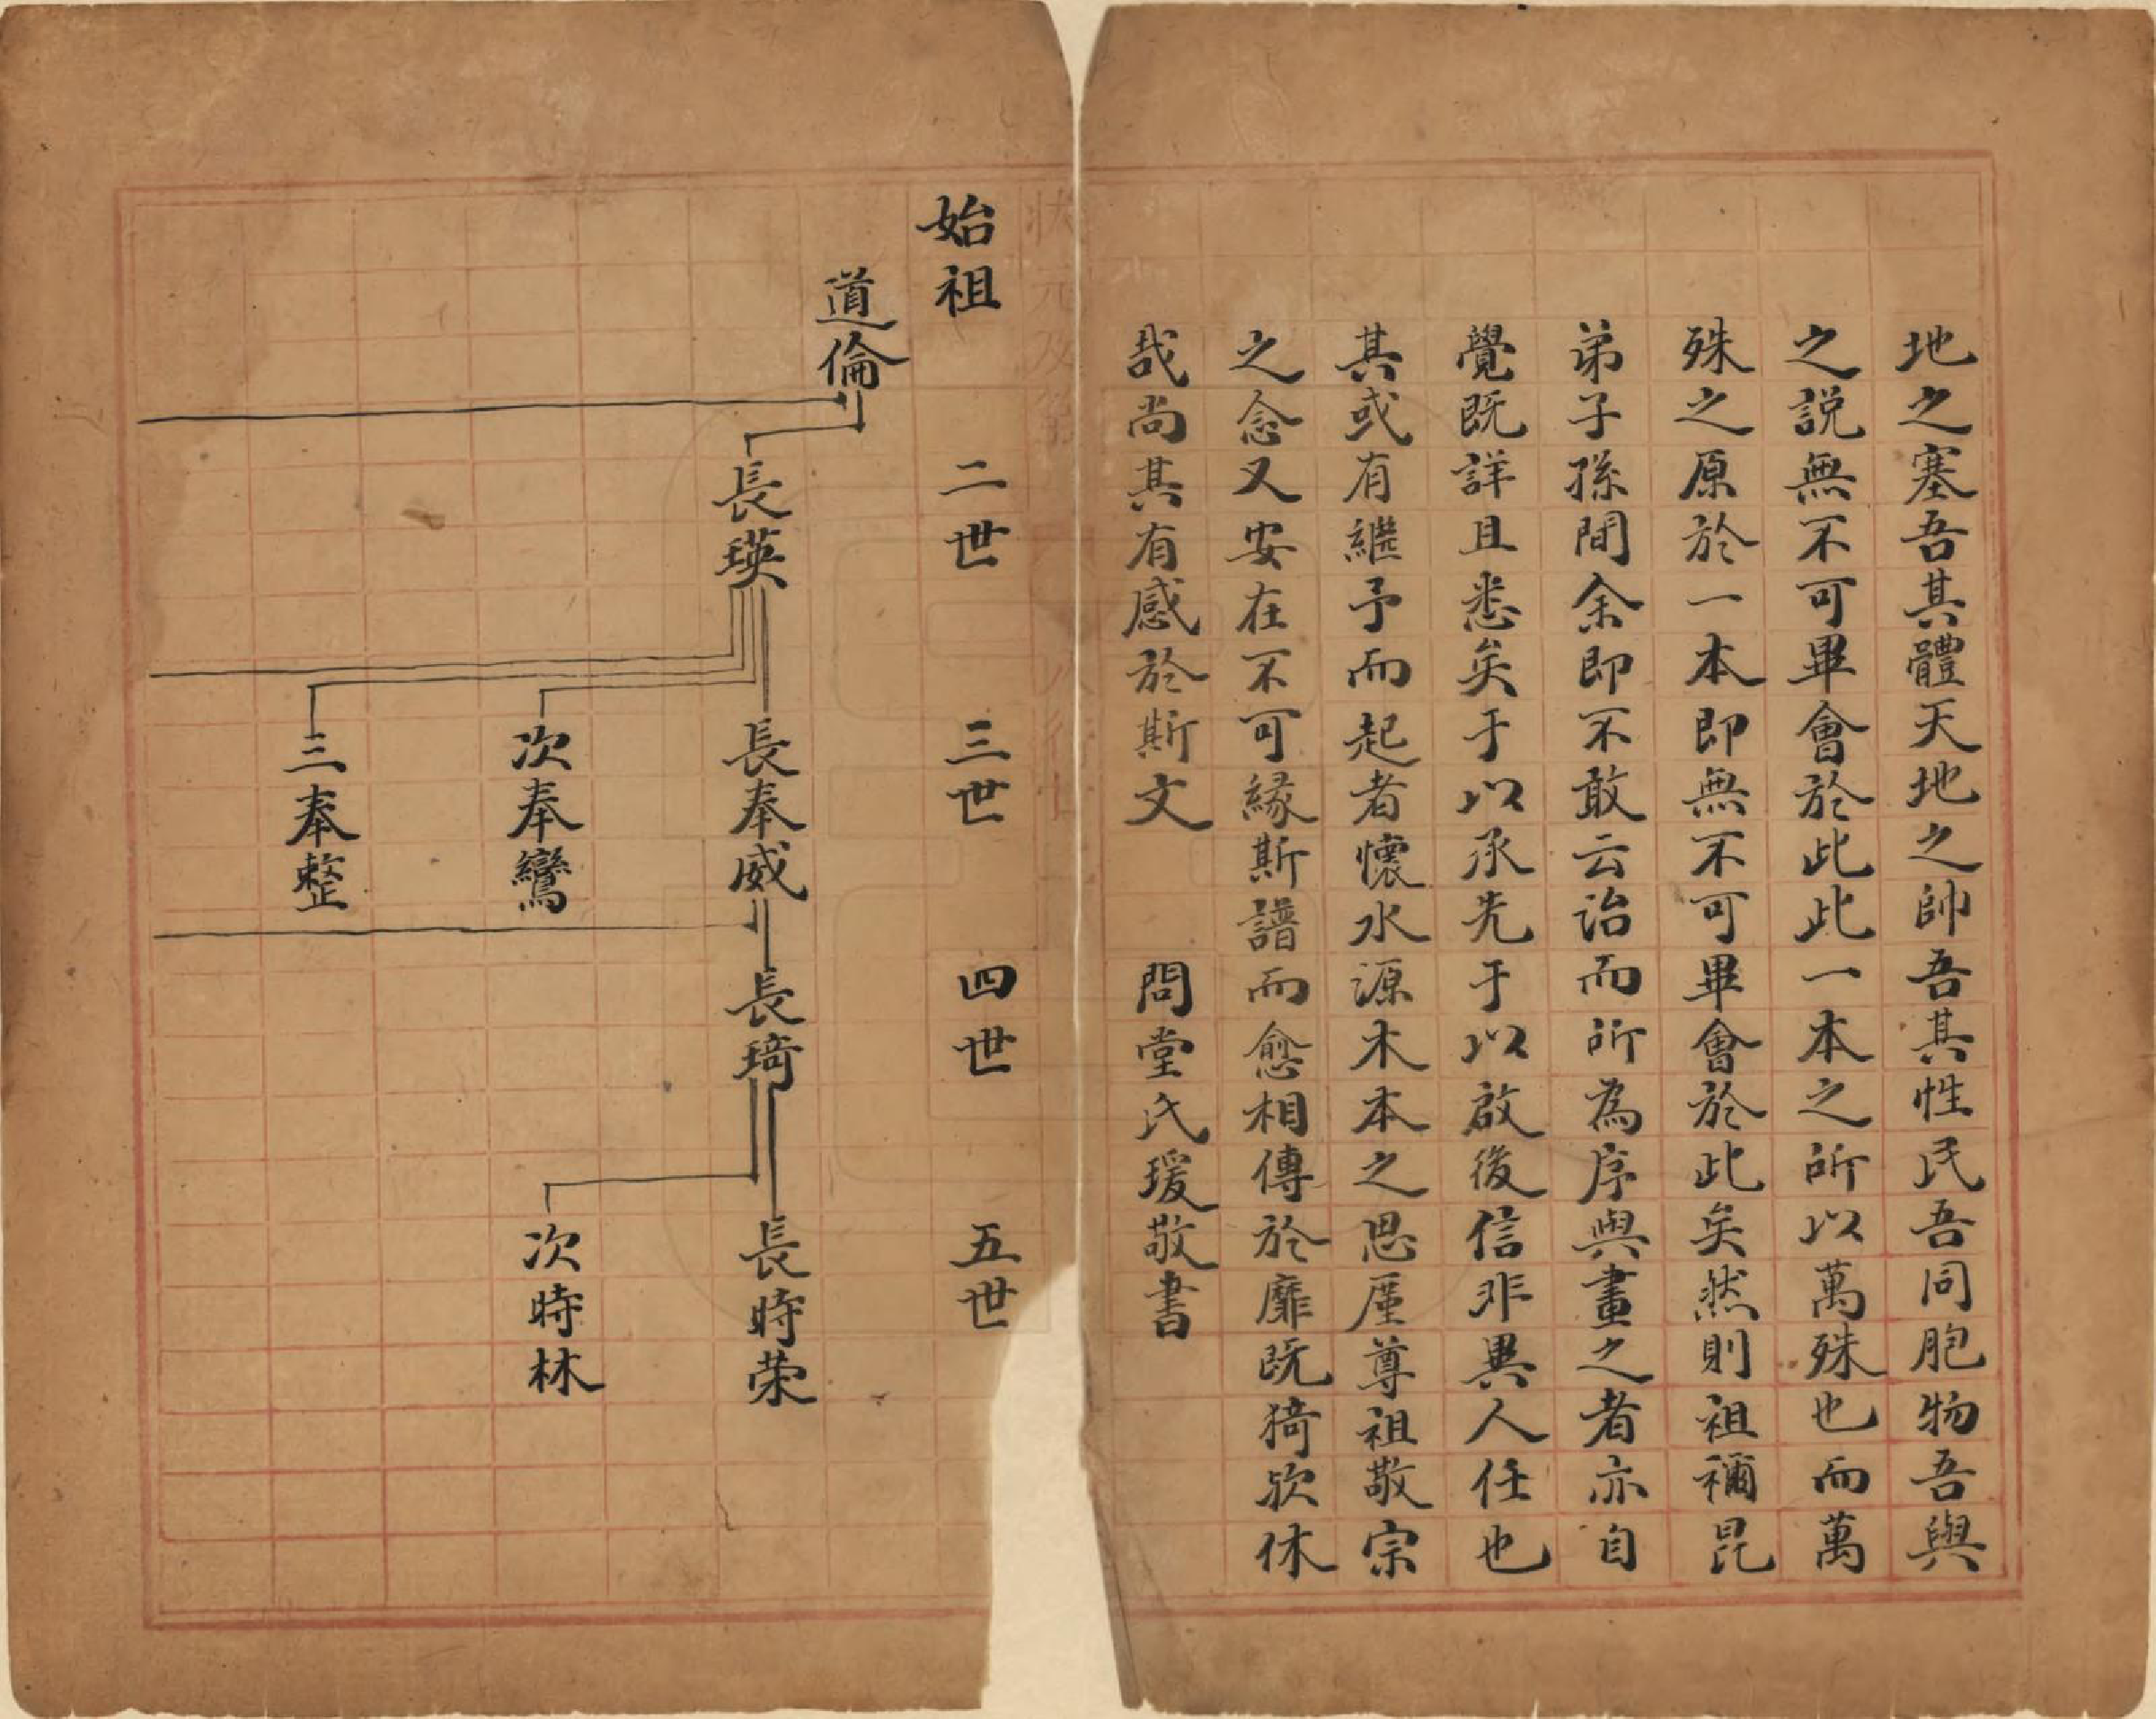 地之塞吾其體天地之帥吾其性民吾同胞物吾與
之説無不可畢會於此此一本之所以萬殊也而萬
殊之原於一本即無不可畢會於此矣然則祖禰昆
弟子孫間余即不敢云治而所為序與畫之者亦自
覺既詳且悉矣于以承先于以啟後信非異人任也
其或有繼予而起者懷水源木本之思厪尊祖敬宗
之念又安在不可緣斯譜而愈相傳於靡既猗欤休
哉尚其有感於斯文 問堂氏瑗敬書
始祖 二世 三世 四世 五世
道倫
長瑛
長奉威 次奉鸞 三奉整
長琦
長時荣 次時林